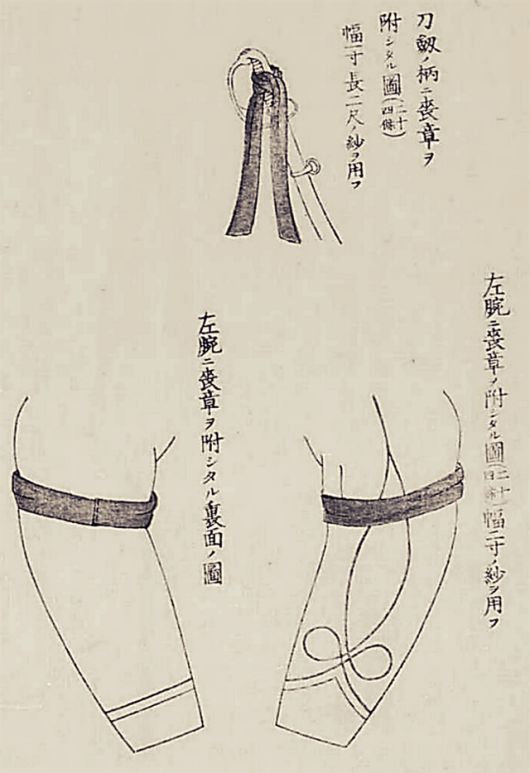 刀劔ノ柄ニ喪章ヲ
附シタル圖(二十四條)
幅一寸長二尺ノ紗ヲ用フ
左腕ニ喪章ノ附シタル圖(二十四條)幅二寸ノ紗ヲ用フ
左腕ニ喪章ヲ附シタル裏面ノ圖